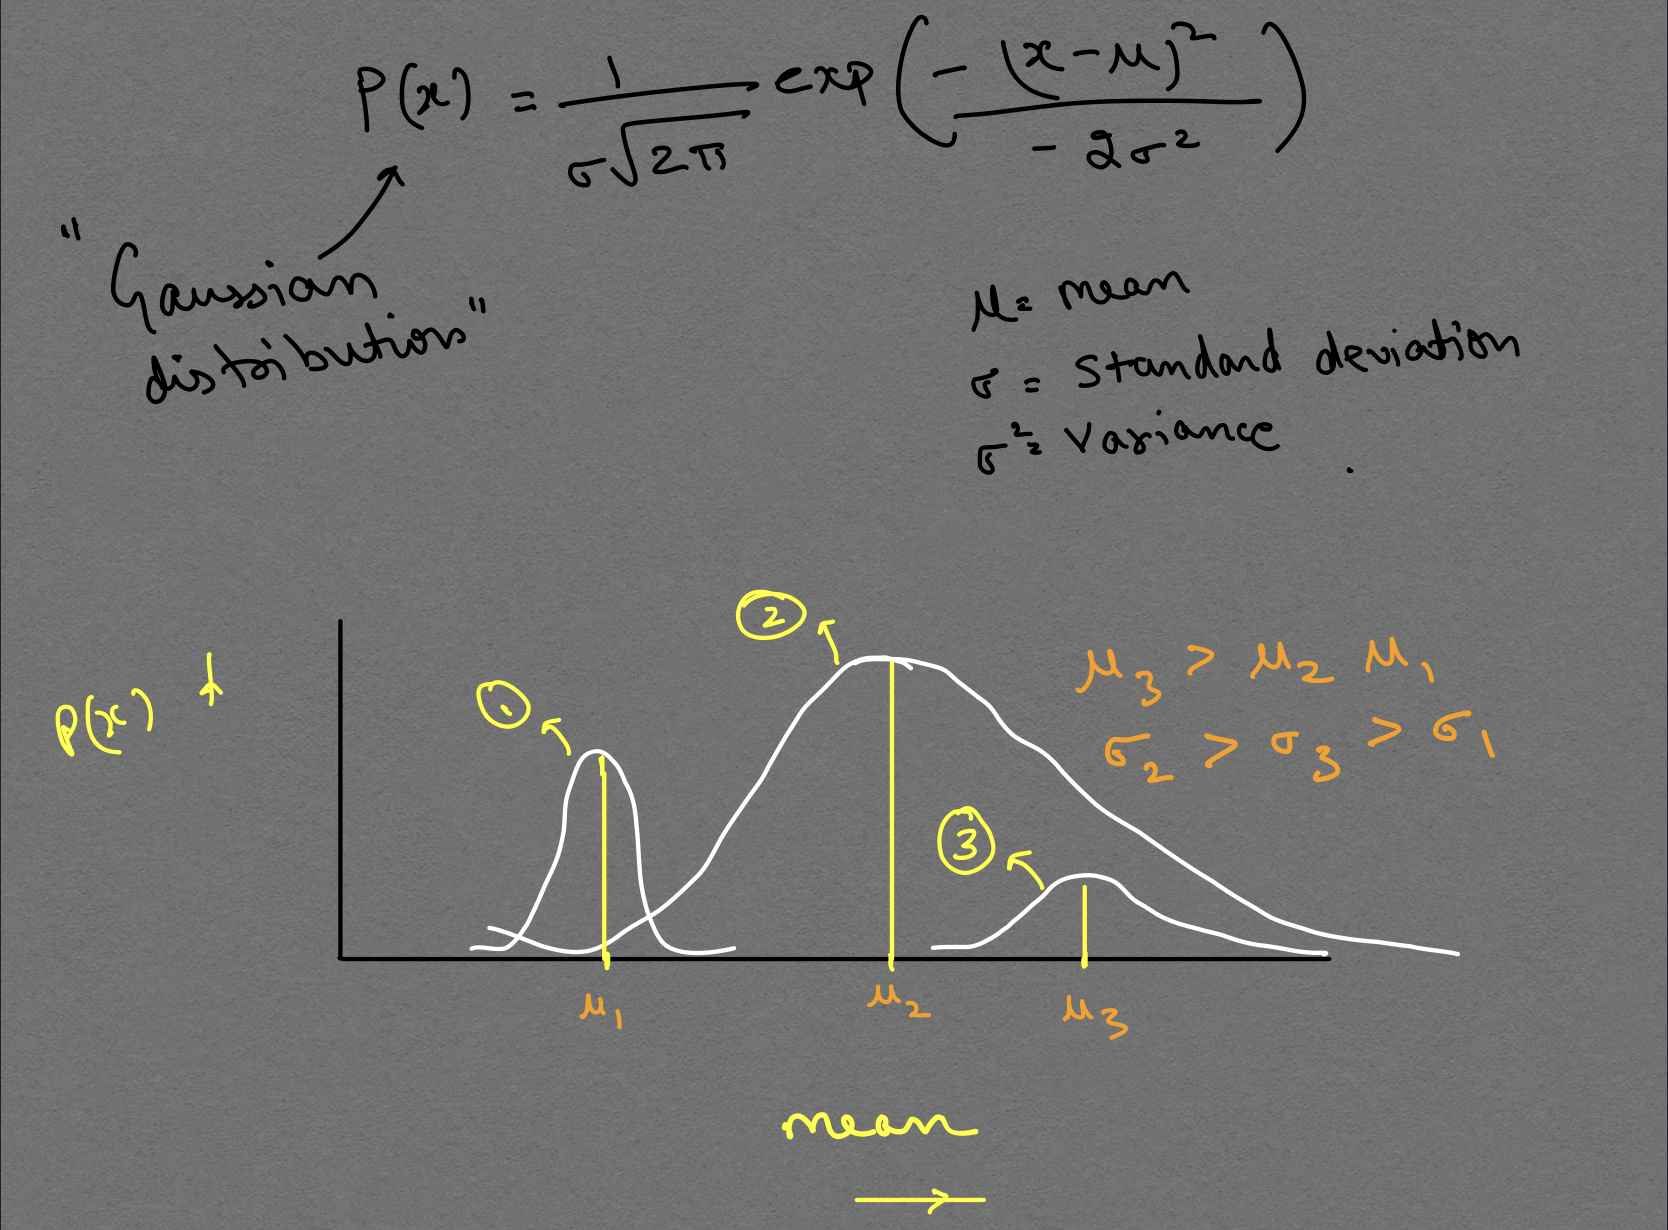 P(x) = 1/σ√2π exp(-(x-μ)²/-2σ²)
"Gaussian
distribution"
μ= mean
σ = Standard deviation
σ²= Variance
②
①
P(x)
μ₃ > μ₂ μ₁
σ₂ > σ₃ > σ₁
③
μ₁ μ₂ μ₃
mean